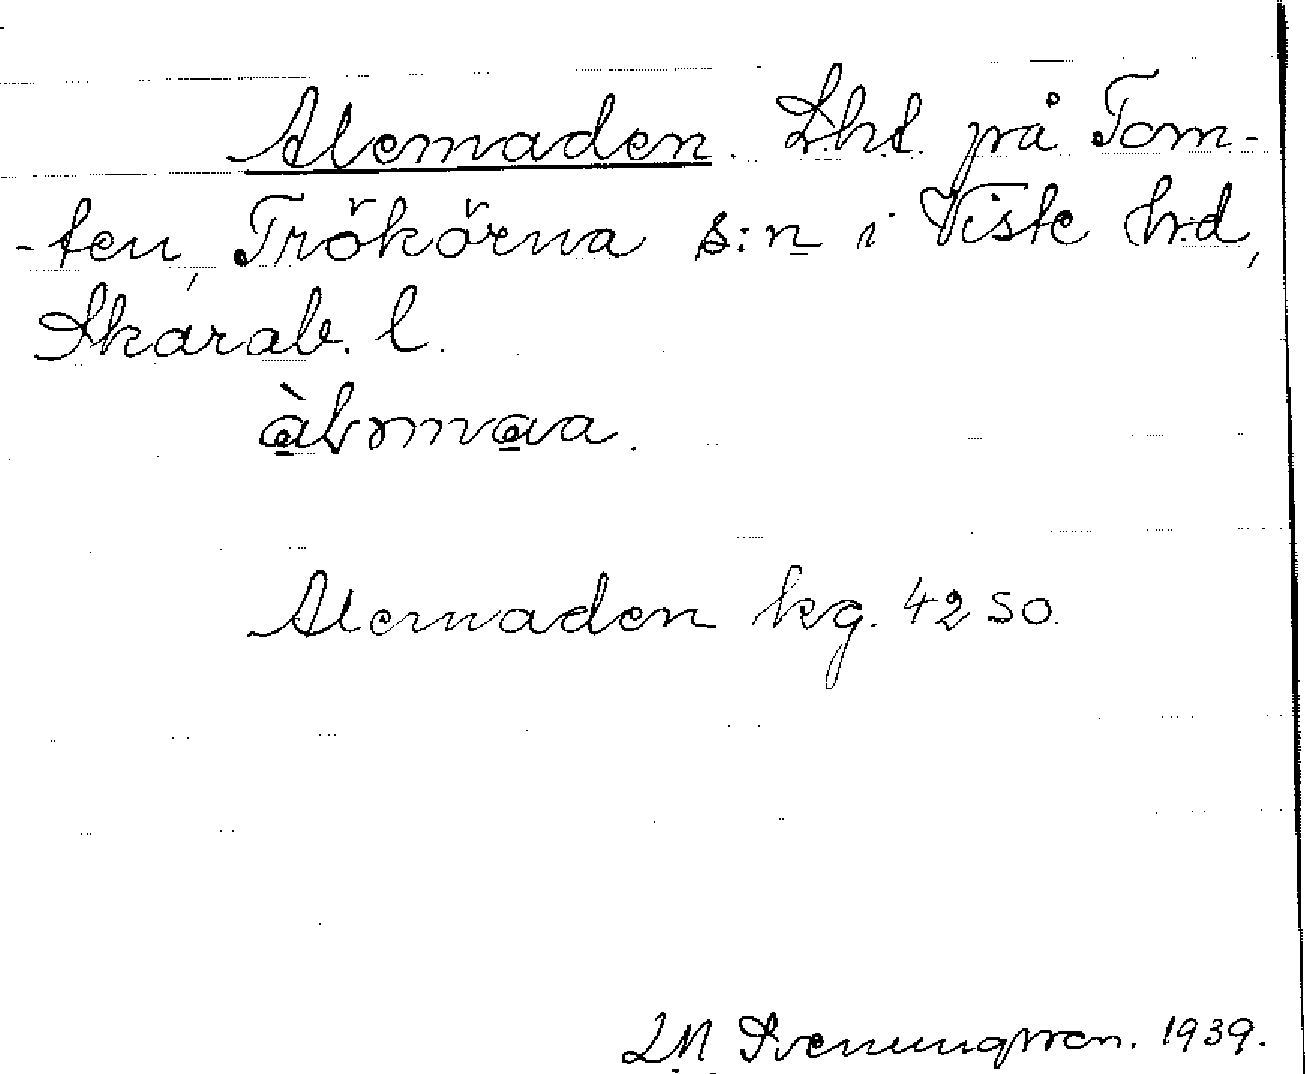 Alemaden. Lht. på Tom-
-ten, Trökörna s:n i Viste hrd,
Skarab. l.
Alemaden kg. 4250.
LM Svenungsson. 1939.